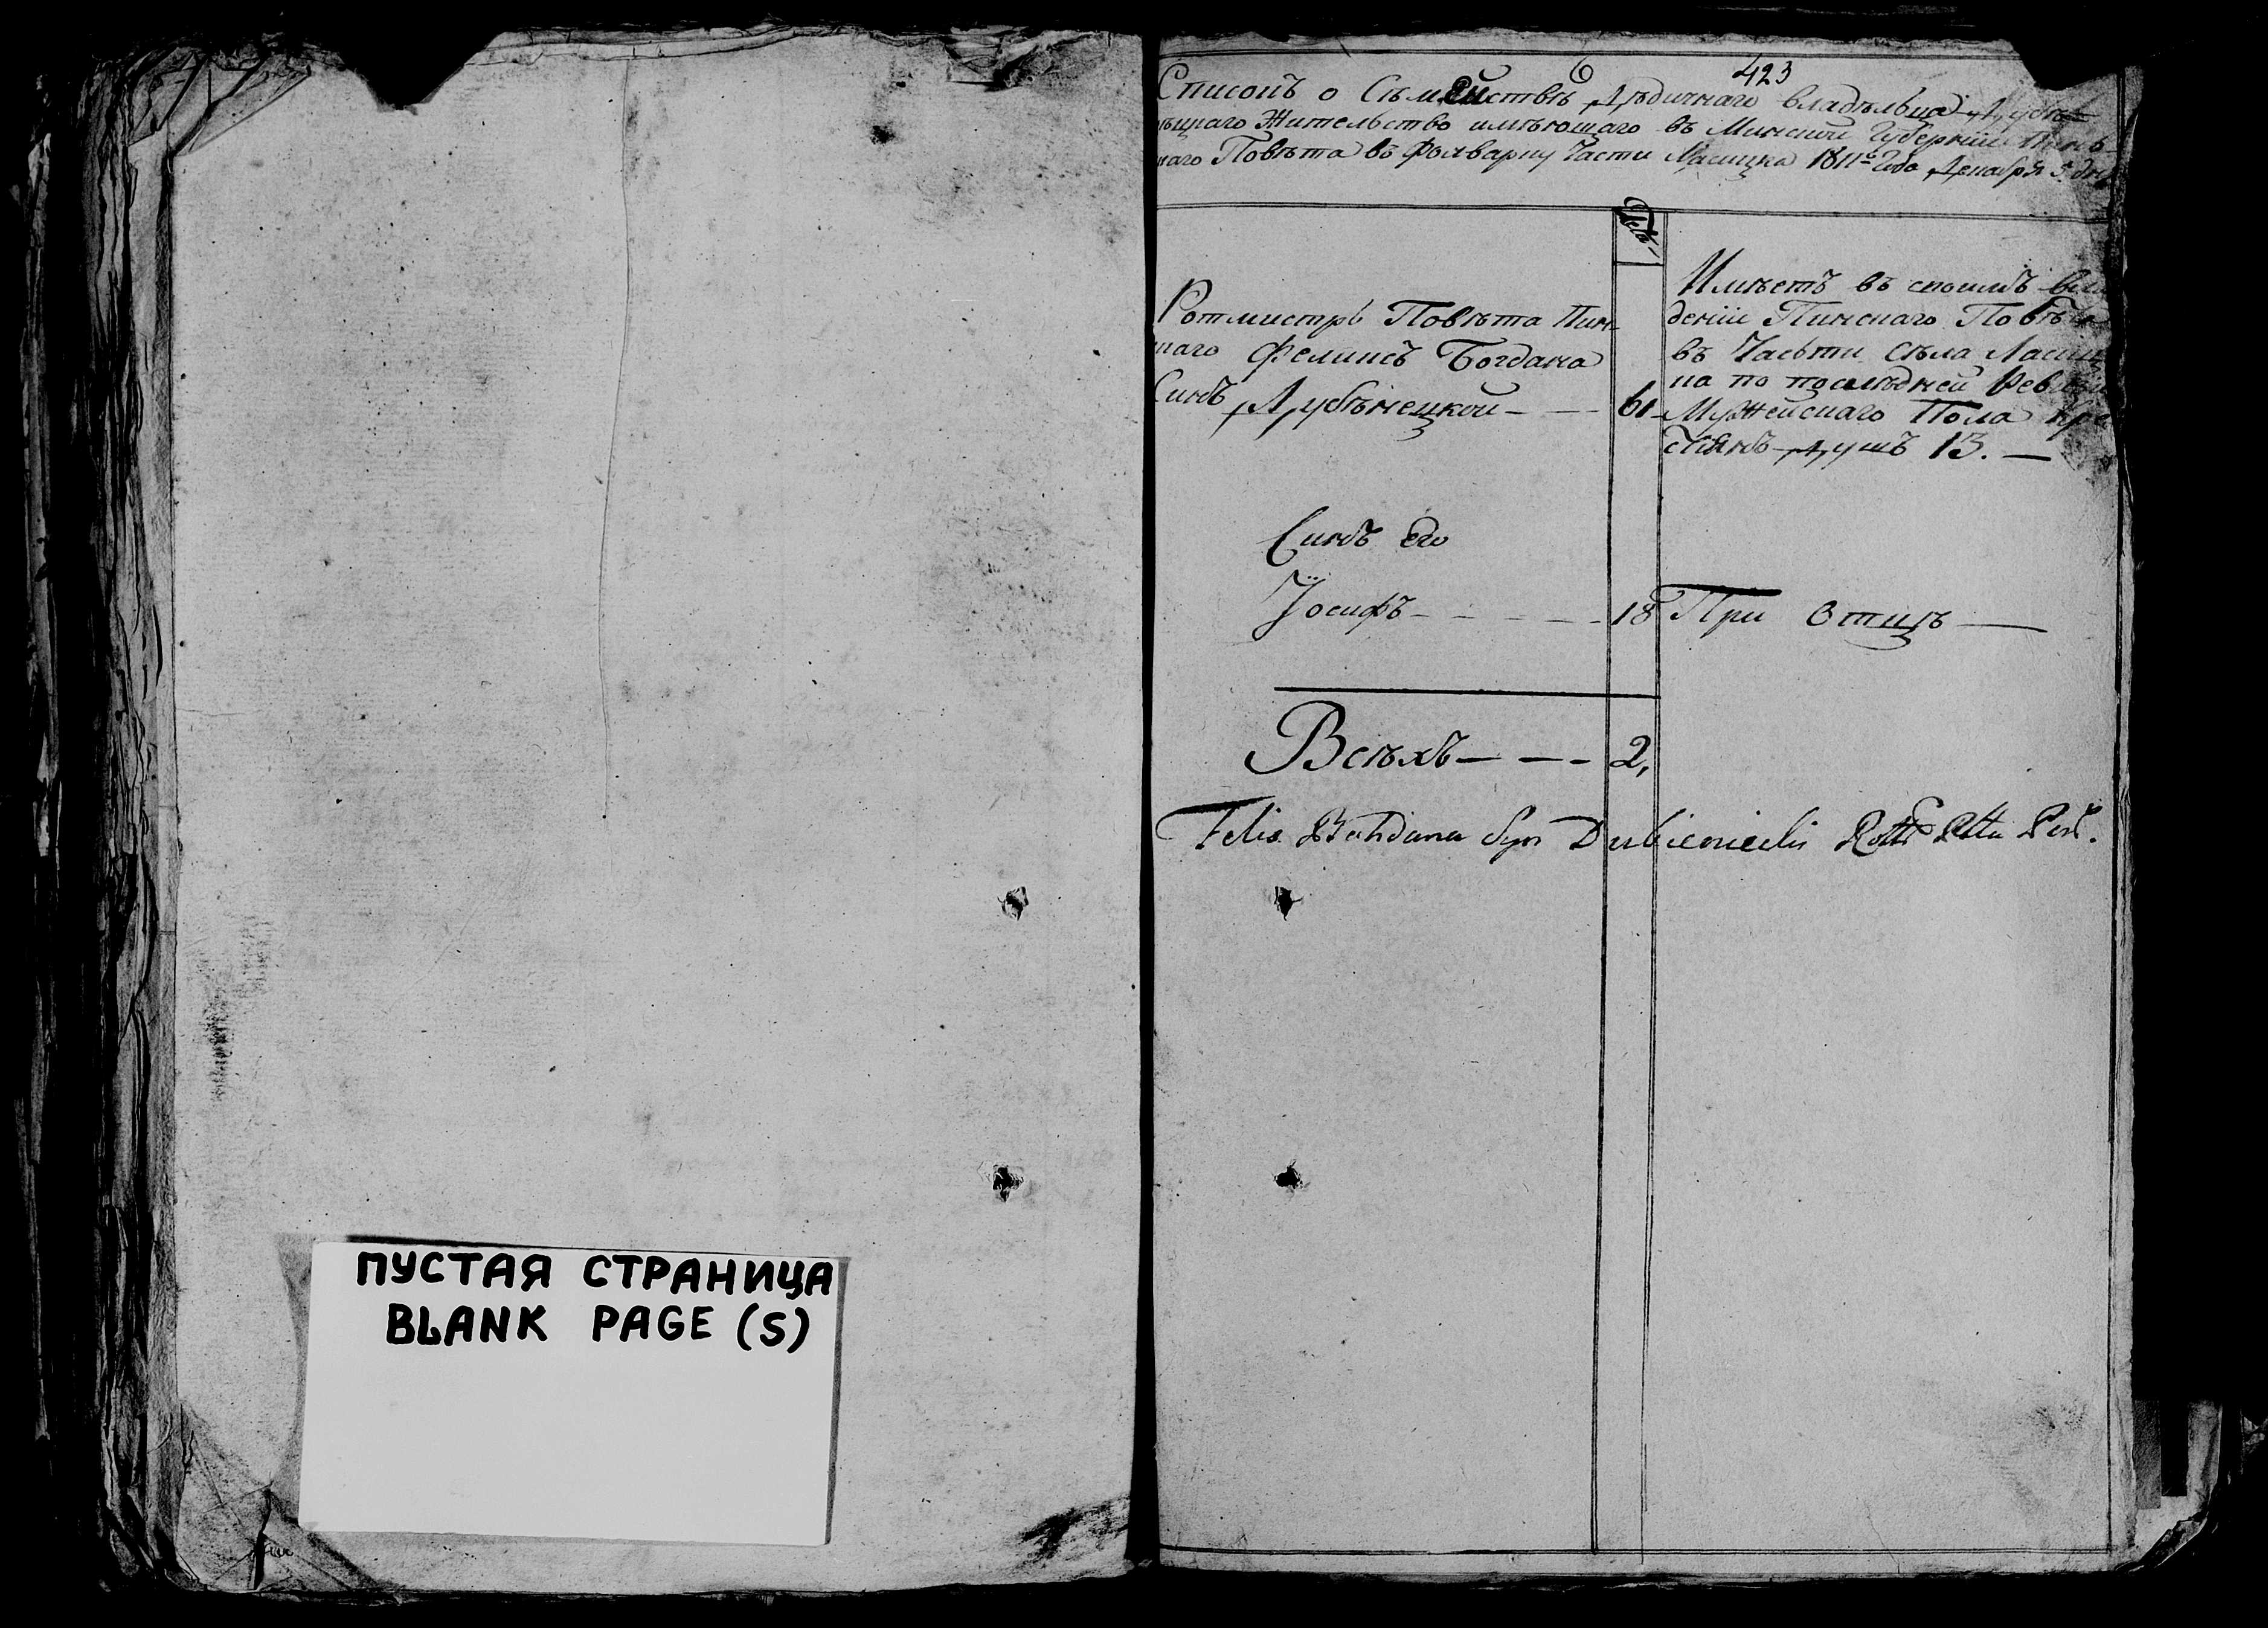 ПУСТАЯ СТРАНИЦА
BLANK PAGE (S)
6 423
Списокъ о Съмействѣ Дѣдичнаго владѣльца Дубѣ-
нѣцкаго Жительство имѣющаго въ Минской Губерніи Пинс-
каго Повѣта въ Фолварку Части Ласицка 1811го Года Декабря 3 дня
Лета
Ротмистръ Повѣта Пин-
скаго Феликсъ Богдана
Синъ Дубѣнецкой - - - 61
Имѣетъ въ своимъ вла
деніи Пинскаго Повѣта
въ Часьти Съла Ласиц
ка по послѣдней Ревизіи
Мужейскаго Пола кре
стянъ Душъ 13. —
Синъ Его
Іосифъ - - - - - 18 При Отцѣ —
Всѣхъ - - - 2,
Felix Bohdana Syn Dubieniecki Rottr Pttu Pin.